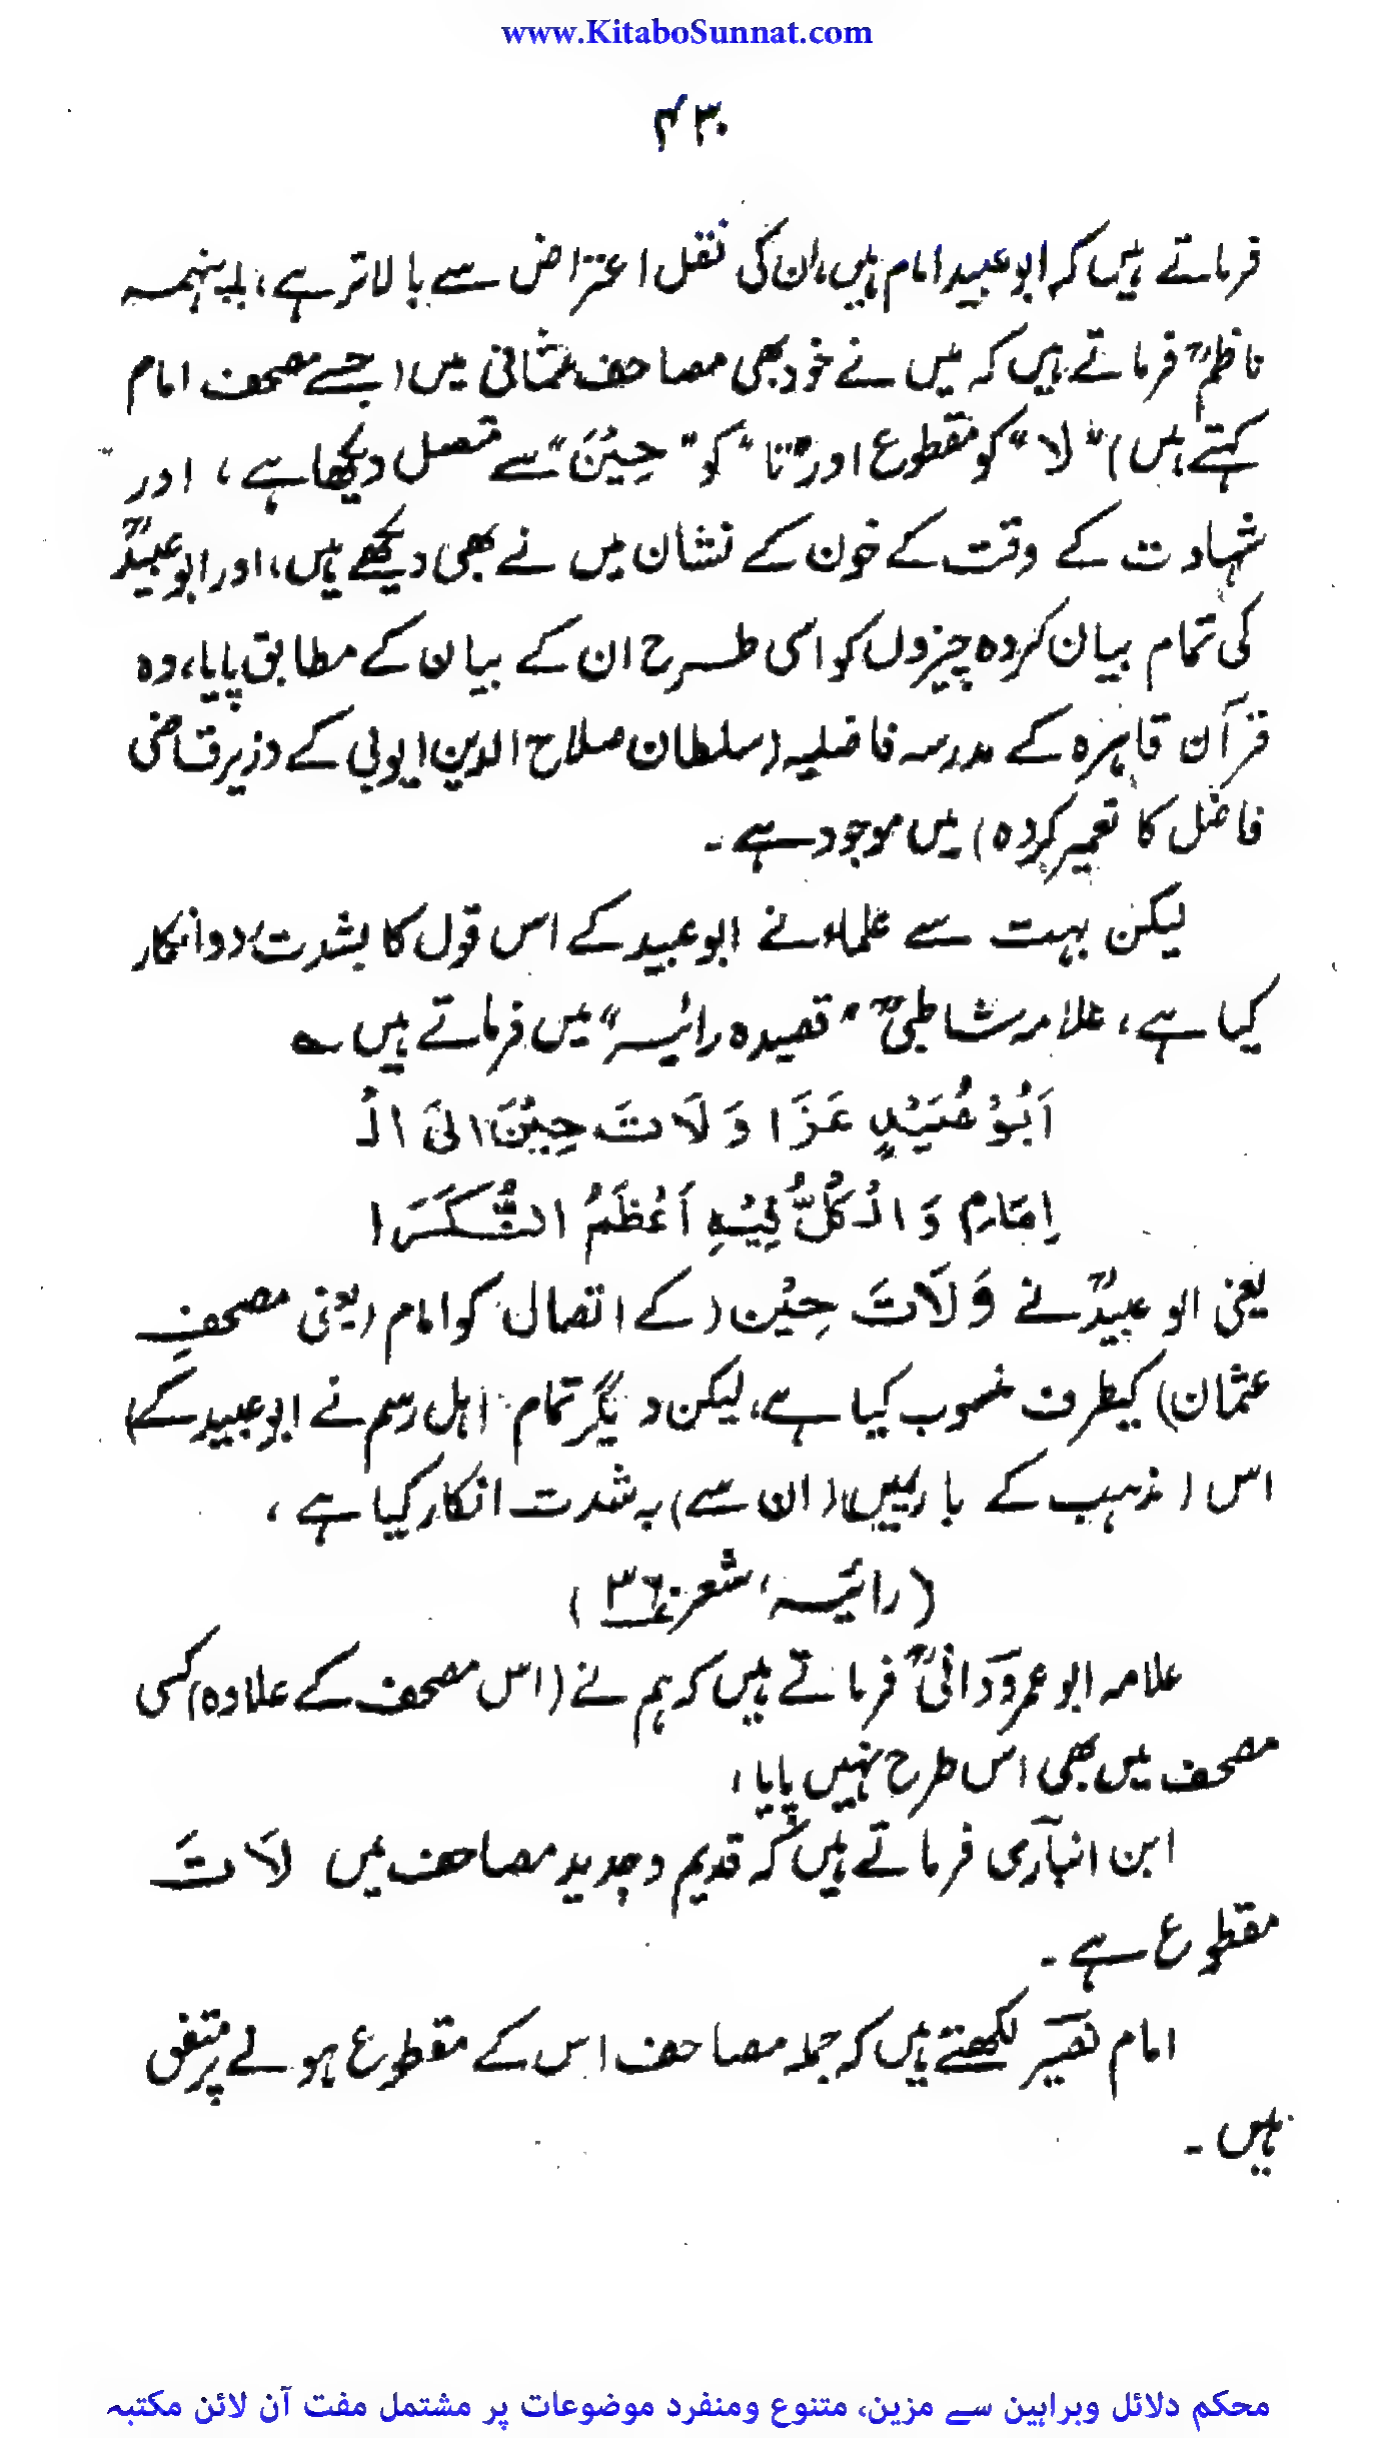 www.KitaboSunnat.com
۴۳۰
فرماتے ہیں کہ ابوعبید امام ہیں، ان کی نقل اعتراض سے بالاتر ہے، بایںہمہ
ناظمؒ فرماتے ہیں کہ میں نے خود بھی مصاحف عثمانی میں (جسے مصحف امام
کہتے ہیں) "لا" کو مقطوع اور "تا" کو "حِیْنَ" سے متصل دیکھا ہے، اور
شہادت کے وقت کے خون کے نشان میں نے بھی دیکھے ہیں، اور ابوعبیدؒ
کی تمام بیان کردہ چیزوں کو اسی طرح ان کے بیان کے مطابق پایا، وہ
قرآن قاہرہ کے مدرسہ فاضلیہ (سلطان صلاح الدین ایوبی کے وزیر قاضی
فاضل کا تعمیر کردہ) میں موجود ہے۔
لیکن بہت سے علماء نے ابوعبید کے اس قول کا بشدت رد و انکار
کیا ہے، علامہ شاطبیؒ "قصیدہ رائیہ" میں فرماتے ہیں ؎
اَبُوْ عُبَیْدٍ عَزَا وَلَاتَ حِیْنَ اِلَی الْـ
اِمَامِ وَالْکُلُّ فِیْہِ اَعْظَمُ النُّکَرَا
یعنی ابو عبیدؒ نے وَلَاتَ حِیْن (کے اتصال کو امام (یعنی مصحفِ
عثمان) کیطرف منسوب کیا ہے، لیکن دیگر تمام اہل رسم نے ابوعبید کے)
اس (مذہب کے بارمیں (ان سے) بہ شدت انکار کیا ہے،
(رائیہ، شعر نمبر ۳۶)
علامہ ابوعمرو دانیؒ فرماتے ہیں کہ ہم نے (اس مصحف کے علاوہ) کسی
مصحف میں بھی اس طرح نہیں پایا،
ابن انباری فرماتے ہیں کہ قدیم و جدید مصاحف میں لَا تَ
مقطوع ہے۔
امام نصیر لکھتے ہیں کہ جملہ مصاحف اس کے مقطوع ہونے پر متفق
ہیں۔
محکم دلائل وبراہین سے مزین، متنوع ومنفرد موضوعات پر مشتمل مفت آن لائن مکتبہ